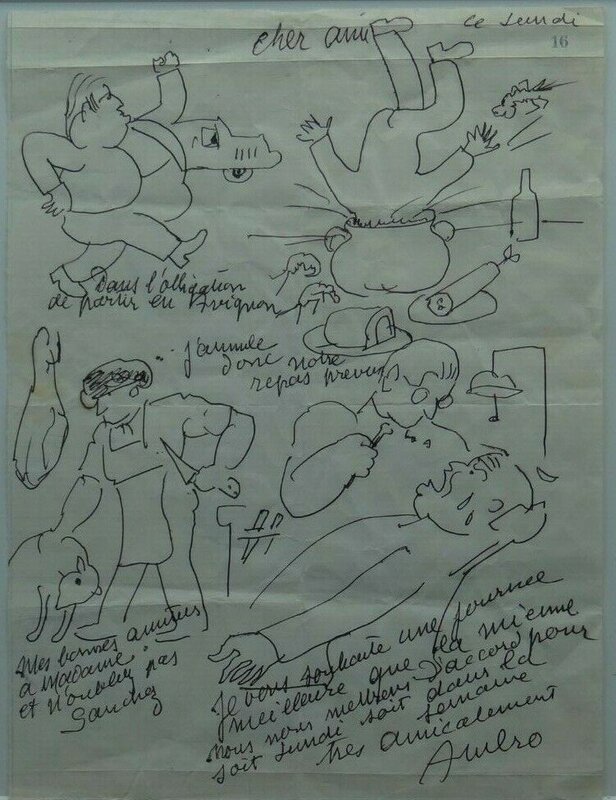 ce lundi
16
cher ami
Dans l'obligation
de partir en Avignon
j'annule
donc notre
repas prevu
Mes bonnes amities
à Madame
et n'oubliez pas
Sanchez
Je vous souhaite une journee
meilleure que la mienne
nous nous mettrons d'accord pour
soit lundi soit dans la
semaine
très amicalement